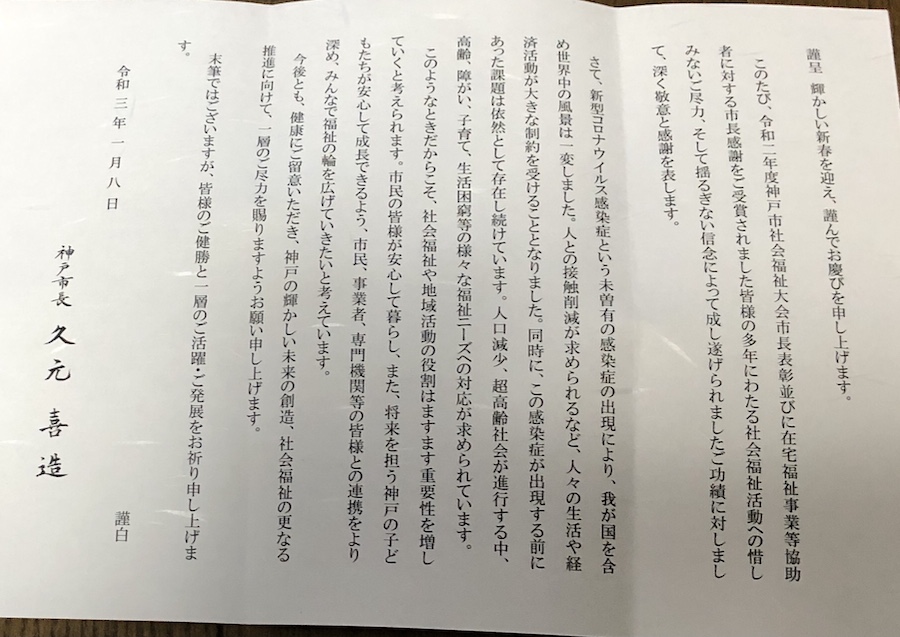 謹呈　輝かしい新春を迎え、謹んでお慶びを申し上げます。
このたび、令和二年度神戸市社会福祉大会市長表彰並びに在宅福祉事業等協助
者に対する市長感謝をご受賞されました皆様の多年にわたる社会福祉活動への惜し
みないご尽力、そして揺るぎない信念によって成し遂げられましたご功績に対しまし
て、深く敬意と感謝を表します。
さて、新型コロナウイルス感染症という未曽有の感染症の出現により、我が国を含
め世界中の風景は一変しました。人との接触削減が求められるなど、人々の生活や経
済活動が大きな制約を受けることとなりました。同時に、この感染症が出現する前に
あった課題は依然として存在し続けています。人口減少、超高齢社会が進行する中、
高齢、障がい、子育て、生活困窮等の様々な福祉ニーズへの対応が求められています。
このようなときだからこそ、社会福祉や地域活動の役割はますます重要性を増し
ていくと考えられます。市民の皆様が安心して暮らし、また、将来を担う神戸の子ど
もたちが安心して成長できるよう、市民、事業者、専門機関等の皆様との連携をより
深め、みんなで福祉の輪を広げていきたいと考えています。
今後とも、健康にご留意いただき、神戸の輝かしい未来の創造、社会福祉の更なる
推進に向けて、一層のご尽力を賜りますようお願い申し上げます。
末筆ではございますが、皆様のご健勝と一層のご活躍・ご発展をお祈り申し上げま
す。
謹白
令和三年一月八日
神戸市長　久元喜造